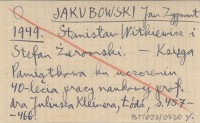 JAKUBOWSKI Jan Zygmunt
1949. Stanisław Witkiewicz i
Stefan Żeromski. – Księga
Pamiątkowa ku uczczeniu
40-lecia pracy naukowej prof.
dra Juliusza Kleinera, Łódź, s. 457
-466.